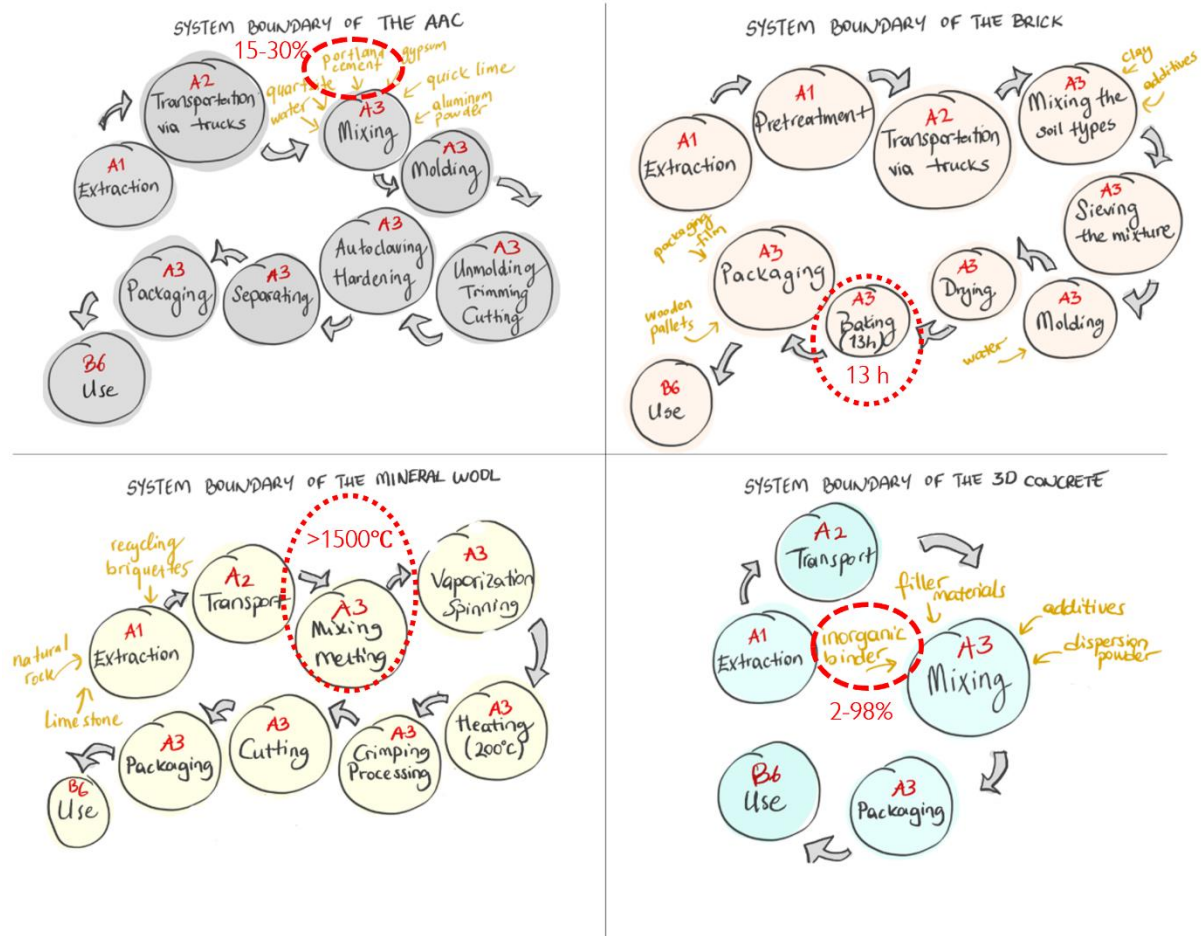 SYSTEM BOUNDARY OF THE AAC
15-30%
portland
cement
gypsum
quartsite
water
quick lime
aluminum
powder
A1
Extraction
A2
Transportation
via trucks
A3
Mixing
A3
Molding
A3
Unmolding
Trimming
Cutting
A3
Autoclaving
Hardening
A3
Separating
A3
Packaging
B6
Use
SYSTEM BOUNDARY OF THE BRICK
A1
Extraction
A1
Pretreatment
A2
Transportation
via trucks
A3
Mixing the
soil types
clay
additives
A3
Sieving
the mixture
A3
Molding
water
A3
Drying
A3
Baking
(13h)
13 h
A3
Packaging
packaging
film
wooden
pallets
B6
Use
SYSTEM BOUNDARY OF THE MINERAL WOOL
recycling
briquettes
natural
rock
Limestone
A1
Extraction
A2
Transport
>1500°C
A3
Mixing
Melting
A3
Vaporization
Spinning
A3
Heating
(200°C)
A3
Crimping
Processing
A3
Cutting
A3
Packaging
B6
Use
SYSTEM BOUNDARY OF THE 3D CONCRETE
A1
Extraction
A2
Transport
filler
materials
inorganic
binder
2-98%
additives
dispersion
powder
A3
Mixing
A3
Packaging
B6
Use